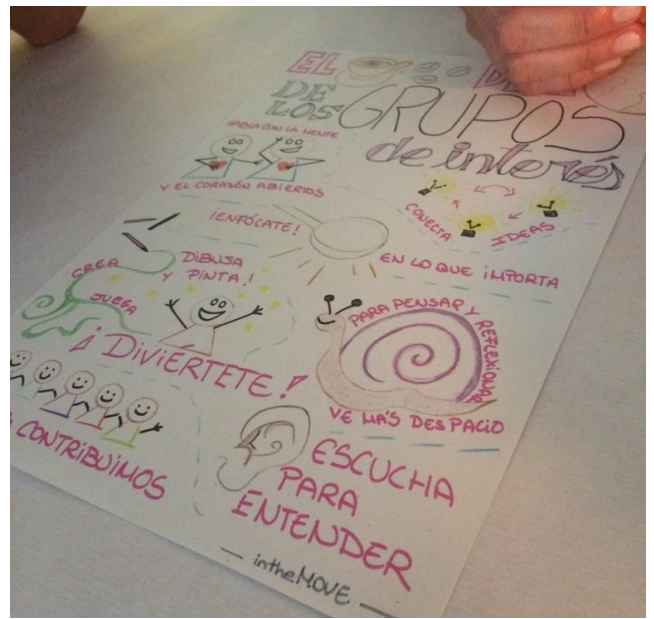 EL
DE
LOS
GRUPOS
de interés
HABLA CON LA MENTE
Y EL CORAZÓN ABIERTOS
CONECTA IDEAS
¡ENFÓCATE!
EN LO QUE iMPORTA
CREA
JUEGA
DiBUJA
Y PiNTA!
¡DiViÉRTETE!
PARA PENSAR Y REFLEXIONAR
VE MÁS DESPACIO
CONTRIBUIMOS
ESCUCHA
PARA
ENTENDER
— intheMOVE —